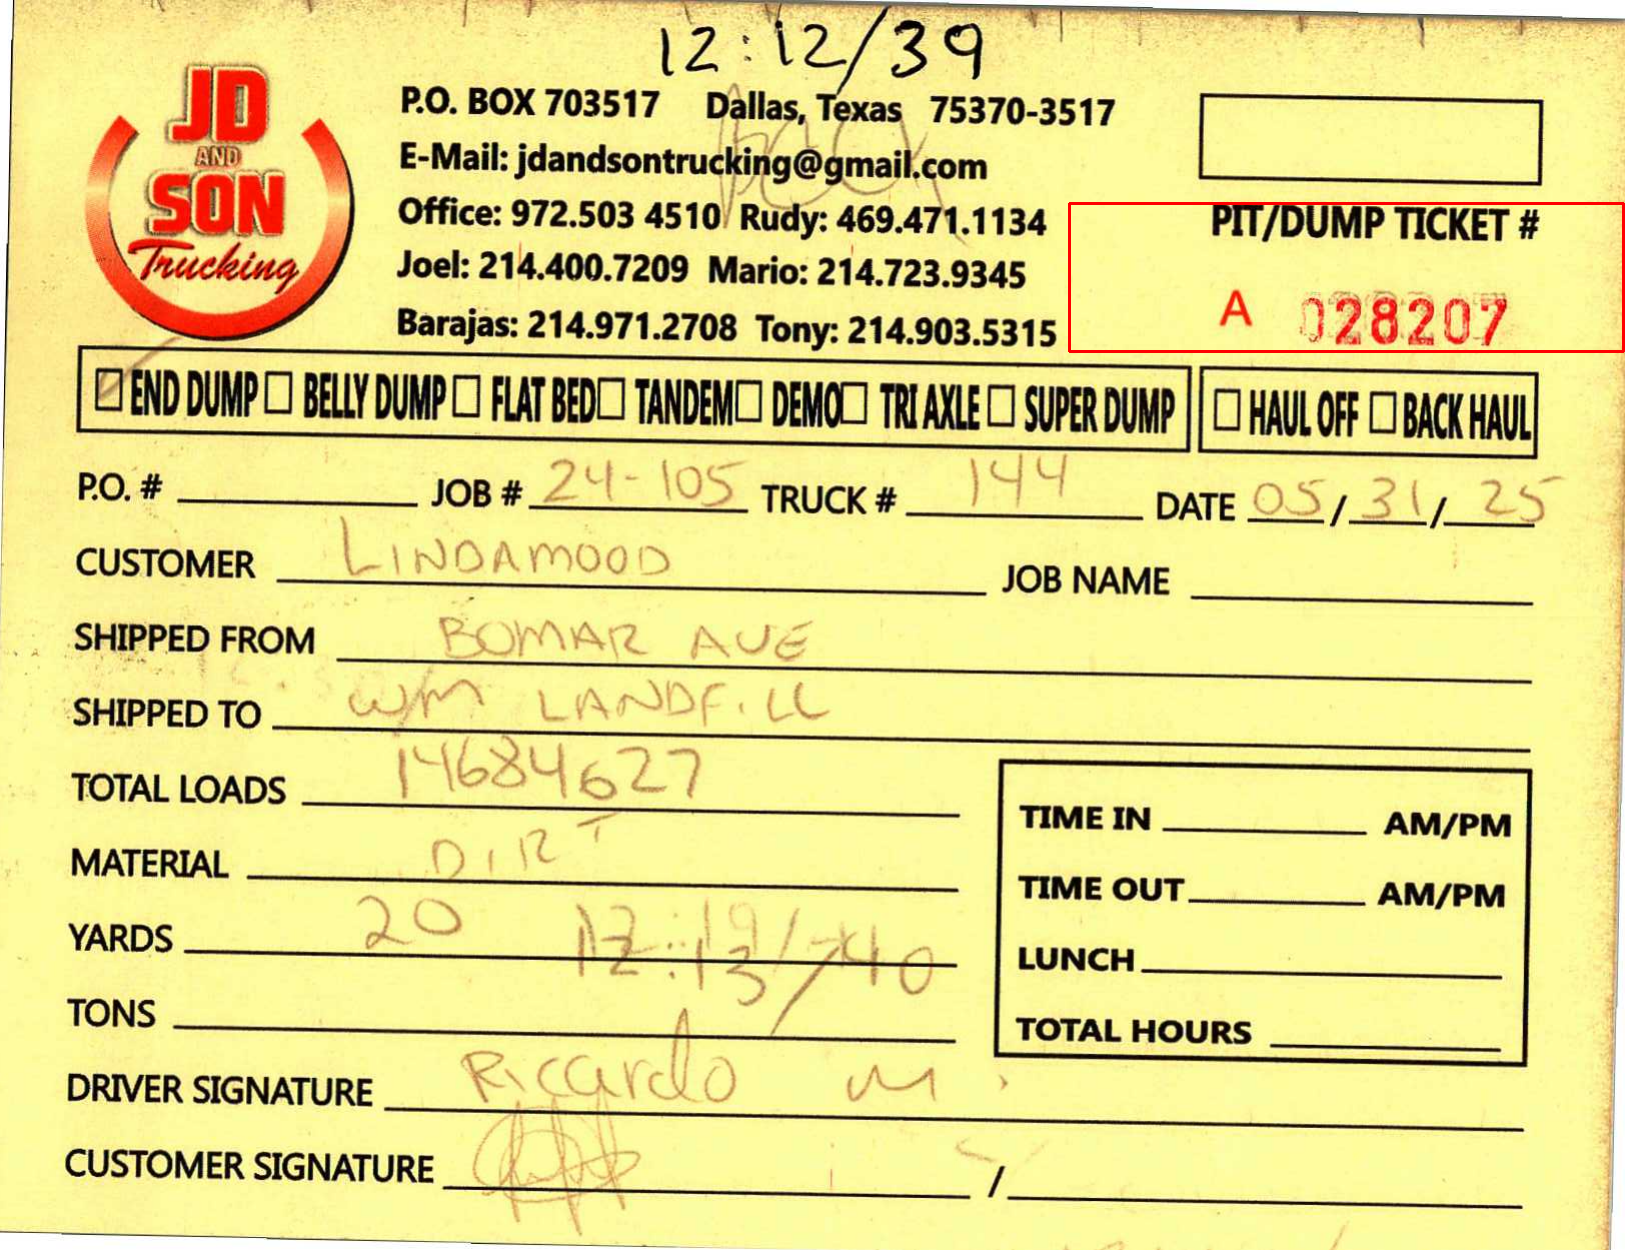 12:12/39
JD
AND
SON
Trucking
P.O. BOX 703517 Dallas, Texas 75370-3517
E-Mail: jdandsontrucking@gmail.com
Office: 972.503 4510 Rudy: 469.471.1134
Joel: 214.400.7209 Mario: 214.723.9345
Barajas: 214.971.2708 Tony: 214.903.5315
PIT/DUMP TICKET #
A 028207
☐ END DUMP ☐ BELLY DUMP ☐ FLAT BED ☐ TANDEM ☐ DEMO ☐ TRI AXLE ☐ SUPER DUMP ☐ HAUL OFF ☐ BACK HAUL
P.O. # JOB # 24-105 TRUCK # 144 DATE 05/31/25
CUSTOMER LINDAMOOD JOB NAME
SHIPPED FROM BOMAR AVE
SHIPPED TO WM LANDFILL
TOTAL LOADS 14684627
MATERIAL DIRT
YARDS 20
TONS
TIME IN AM/PM
TIME OUT AM/PM
LUNCH
TOTAL HOURS
DRIVER SIGNATURE Riccardo M.
CUSTOMER SIGNATURE /